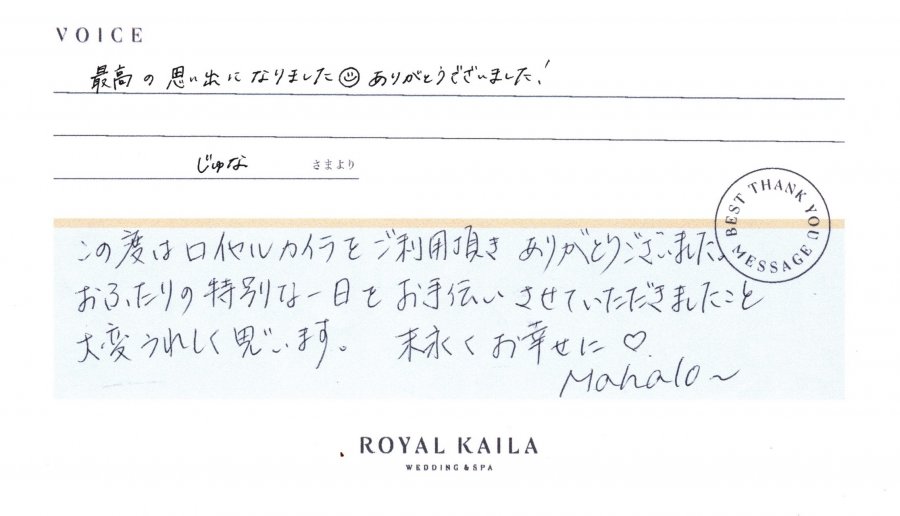 VOICE
最高の思い出になりました☺ありがとうございました!
じゅな さまより
BEST THANK YOU MESSAGE
この度はロイヤルカイラをご利用頂き ありがとうございました。
おふたりの特別な一日を お手伝い させていただきましたこと
大変うれしく思います。 末永くお幸せに♡
Mahalo~
ROYAL KAILA
WEDDING & SPA